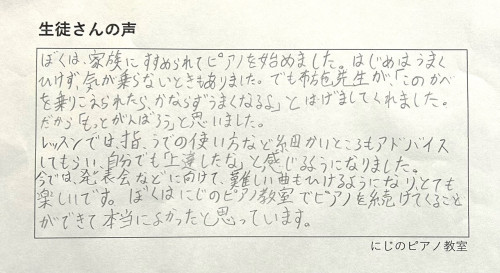 生徒さんの声
ぼくは、家族にすすめられてピアノを始めました。はじめはうまく
ひけず、気が乗らないときもありました。でも布施先生が、「このかべ
を乗りこえられたら、かならずうまくなるよ」とはげましてくれました。
だから「もっとがんばろう」と思いました。
レッスンでは、指、うでの使い方など細かいところもアドバイス
してもらい、自分でも「上達したな」と感じるようになりました。
今では、発表会などに向けて、難しい曲もひけるようになり、とても
楽しいです。ぼくはにじのピアノ教室でピアノを続けてくること
ができて本当によかったと思っています。
にじのピアノ教室